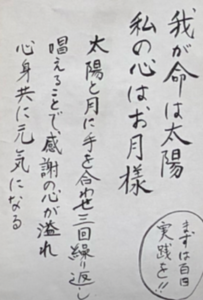 我が命は太陽
私の心はお月様
太陽と月に手を合わせ三回繰り返し
唱えることで、感謝の心が溢れ
心身共に元気になる
まずは百日
実践を!!